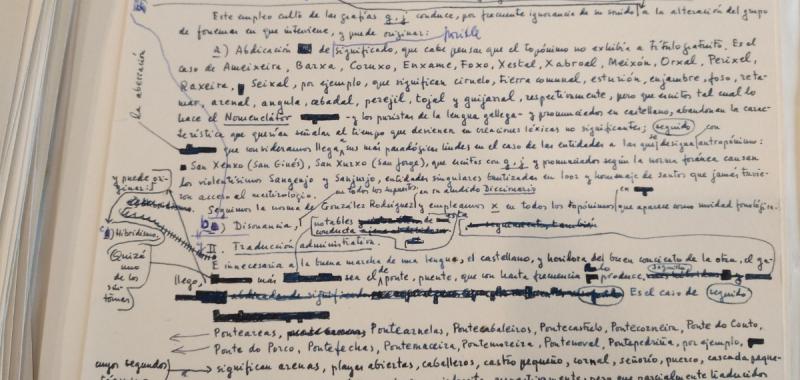 Este empleo culto de las grafías g, j conduce, por frecuente ignorancia de su sonido, a la alteración del grupo
de fonemas en que interviene, y puede originar: posible
a) Abdicación de significado, que cabe pensar que el topónimo no exhibía a título gratuito. Es el
caso de Ameixeira, Barxa, Coruxo, Enxame, Foxo, Xestal, Xabroal, Meixón, Orxal, Perixel,
Raxeira, Seixal, por ejemplo, que significan ciruelo, tierra comunal, esturión, enjambre, foso, reta-
mar, arenal, angula, cebadal, perejil, tojal y guijarral, respectivamente, pero que escritos tal cual lo
hace el Nomenclátor y los puristas de la lengua gallega y pronunciados en castellano, abandonan la carac-
terística que querían señalar al tiempo que devienen en creaciones léxicas no significantes; seguido con
que consideramos llega a sus más paradójicas lindes en el caso de las entidades a las que se designa antropónimo:
San Xenxo (San Ginés), San Xurxo (San Jorge), que escritos con g, j y pronunciados según la norma foránea causan
los violentísimos Sangenjo y Sanjurjo, entidades singulares bautizadas en loor y homenaje de santos que jamás tuvie-
ron acceso al martirologio. en todos los supuestos, en su aludido Diccionario en
Seguimos la norma de González Rodríguez y empleamos x en todos los topónimos que aparece como unidad fonológica.
la aberración
y puede ori-
ginar:
c) Hibridismo,
Quizá
uno
de los
sín-
tomas
b) Disonancia, notables de esta
II Traducción administrativa.
E innecesaria a la buena marcha de una lengua, el castellano, y heridora del buen concierto de la otra, el ga-
llego, más sea el de ponte, puente, que con harta frecuencia produce y
Es el caso de seguido
Ponteareas, Pontearnelas, Pontecabaleiros, Pontecastrelo, Pontecorneión, Ponte do Couto,
Ponte do Porco, Pontefechas, Pontemaceira, Pontemoreira, Pontenoval, Pontepedriña, por ejemplo,
cuyos segundos significan arenas, playas abiertas, caballeros, castro pequeño, cornal, señorío, puerco, cascada peque-